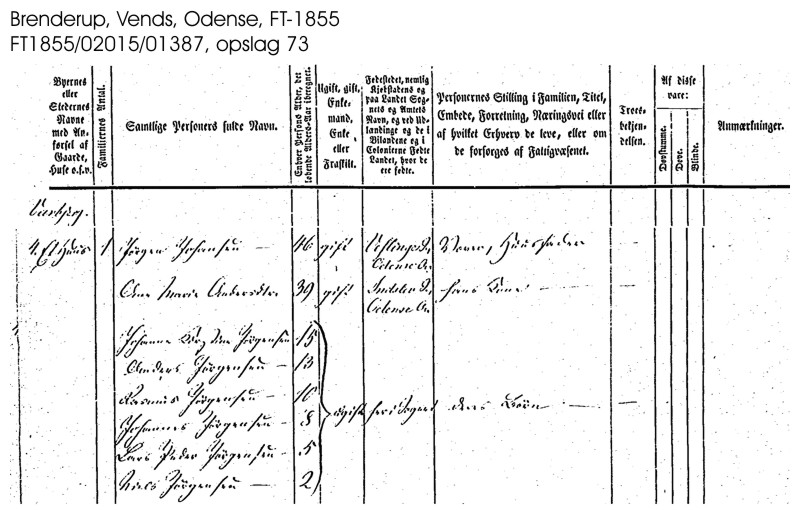 Brenderup, Vends, Odense, FT-1855
FT1855/02015/01387, opslag 73
Byernes
eller
Stedernes
Navne
med An-
førsel af
Gaarde,
Huse o.s.v.
Familiernes Antal.
Samtlige Personers fulde Navn.
Enhver Persons Alder, det
løbende Alders-Aar iberegnet.
Ugift, gift,
Enke-
mand,
Enke
eller
Fraskilt.
Fødestedet, nemlig
Kjøbstadens og
paa Landet Sog-
nets og Amtets
Navn, og ved Ud-
lændinge og de i
Bilandene og i
Colonierne Fødte
Landet, hvor de
ere fødte.
Personernes Stilling i Familien, Titel,
Embede, Forretning, Næringsvei eller
af hvilket Erhverv de leve, eller om
de forsørges af Fattigvæsenet.
Troes-
bekjen-
delsen.
Af disse
vare:
Døvstumme.
Døve.
Blinde.
Anmærkninger.
4. Et Huus 1 Jørgen Johansen — 46 gift Odense A. Væver, Huusfader —
Ane Marie Andersdtr. 39 gift Odense A. hans Kone —
Johanne Jørgensen 15
Anders Jørgensen — 13
Rasmus Jørgensen — 10
ugift her i Sognet deres Børn —
Johannes Jørgensen — 8
Lars Peder Jørgensen — 5
Niels Jørgensen — 2